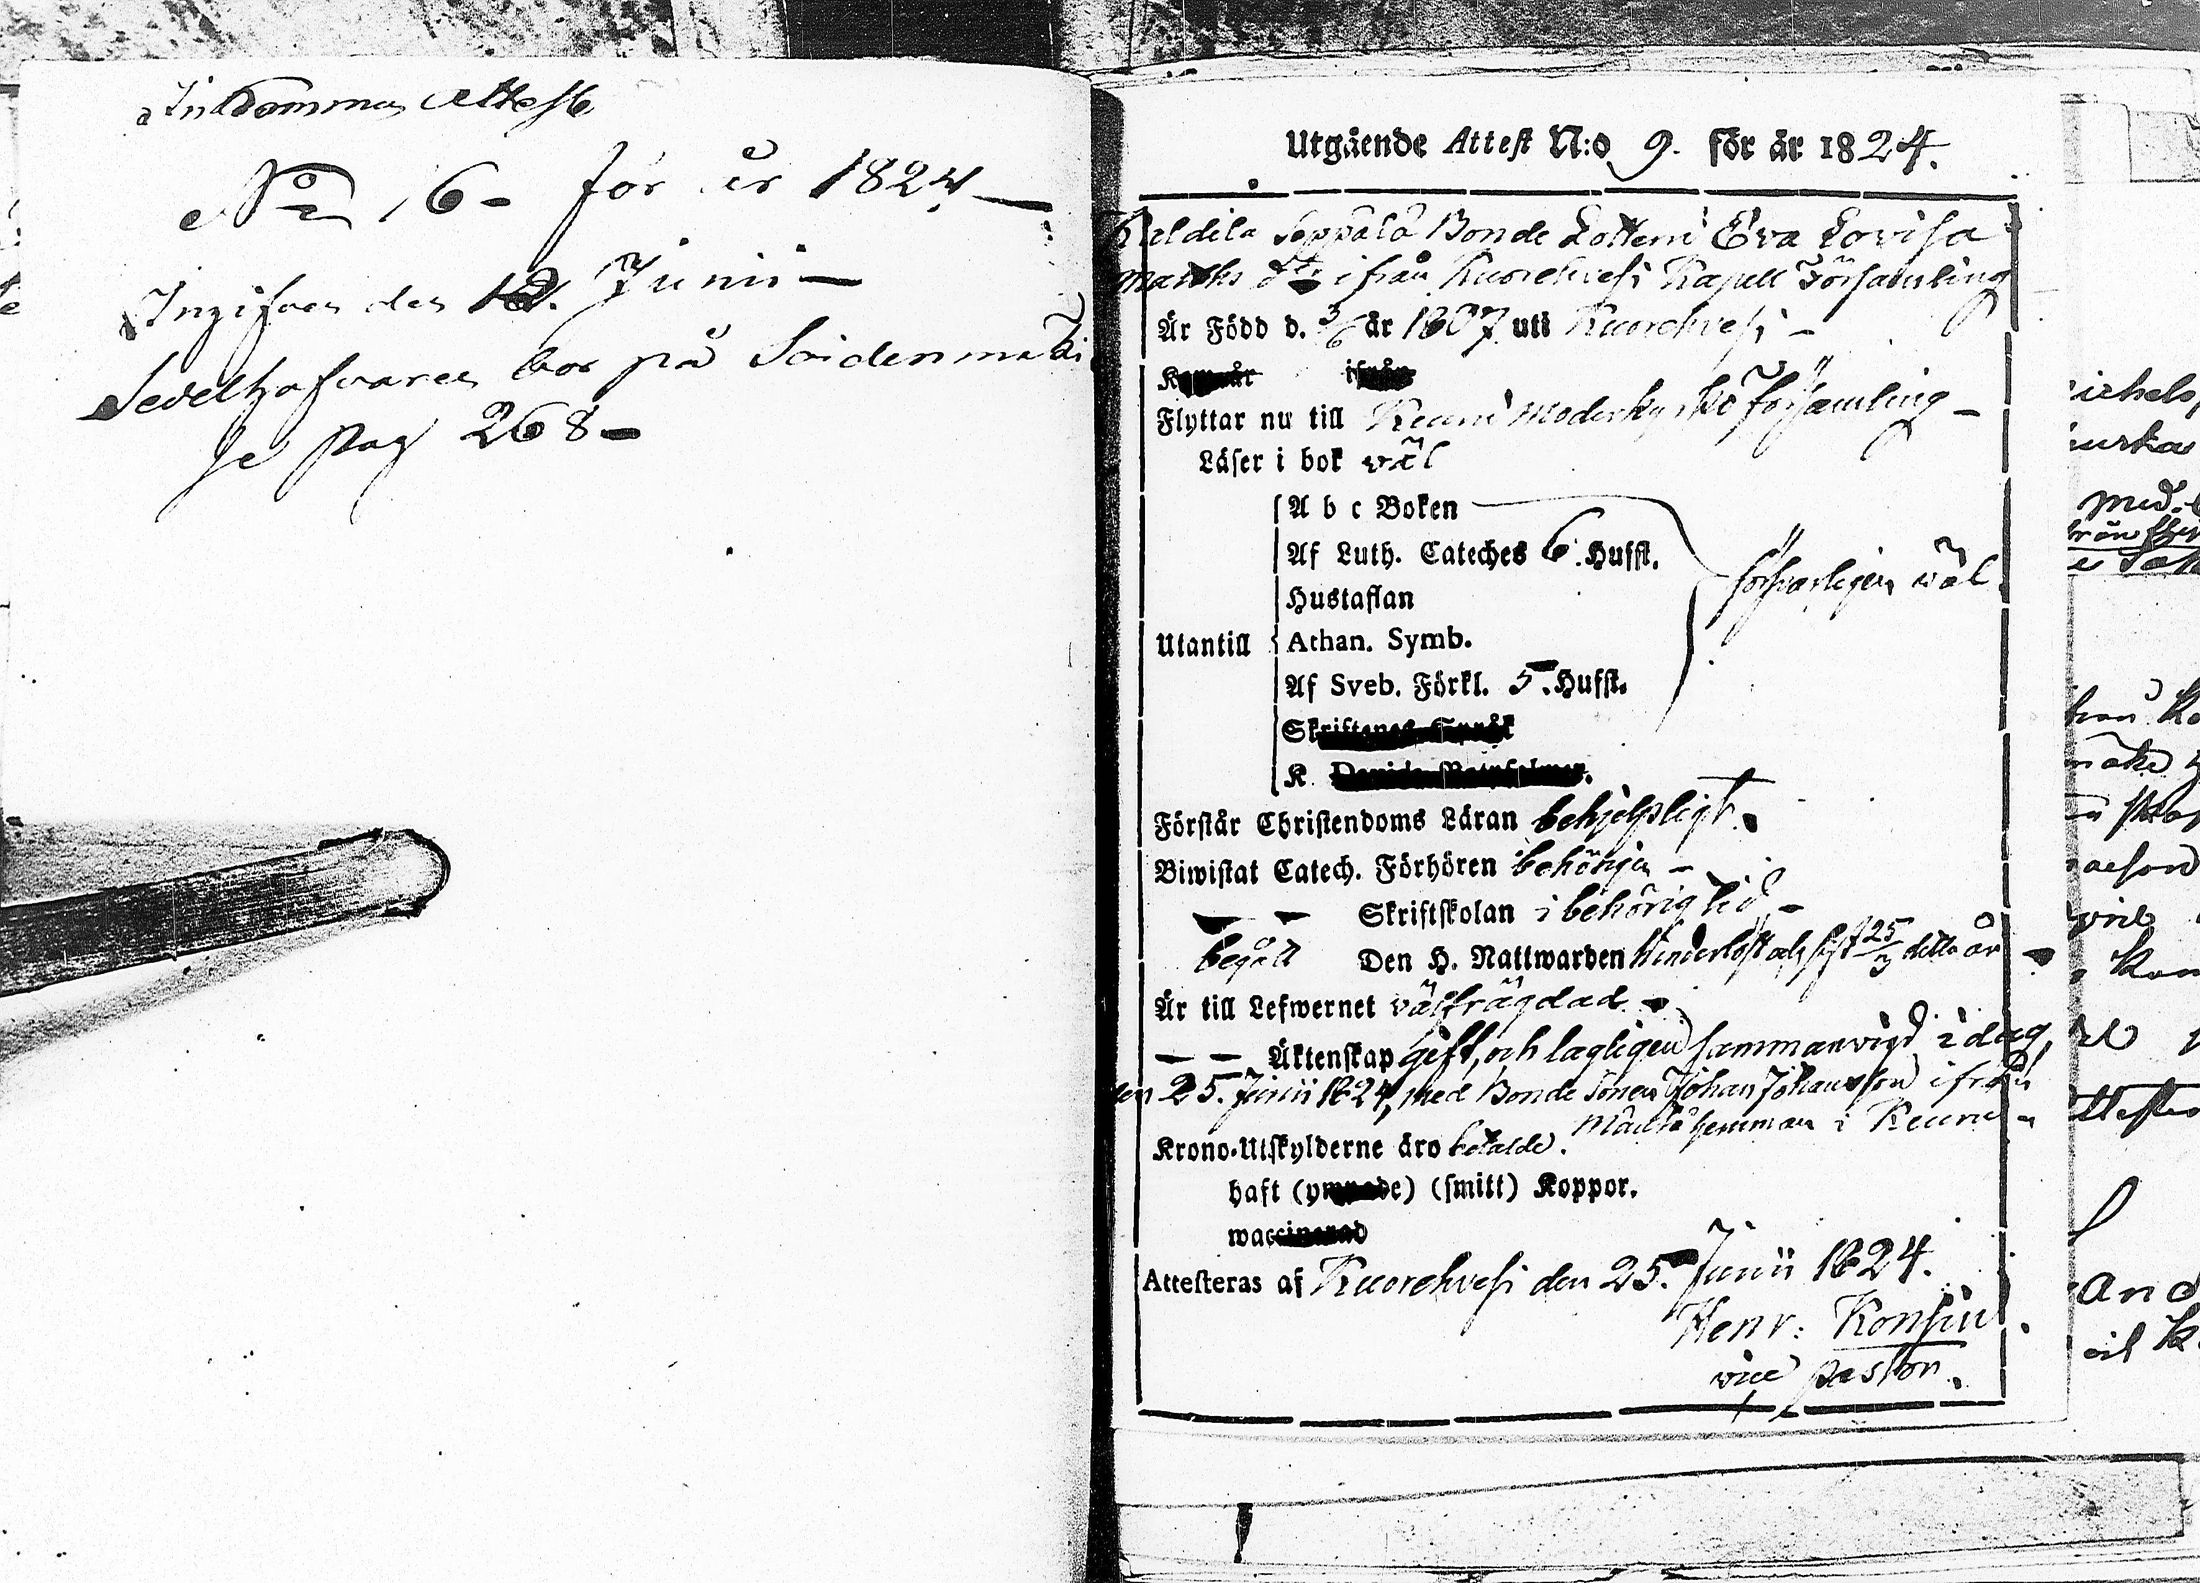 Inkommen Attest
No 16 - för år 1824 -
Ingifven den Junii -
Sedelhafvaren bor på Soidenmäki
se pag 268 -
Utgående Attest N:o 9. för år 1824.
Seppälä Bonde Dottern Eva Lovisa
Matths dr ifrån Kuorehvesi Kapell Församling
Är Född d. 3/6 år 1807 uti Kuorehvesi -
Kom år ifrån
Flyttar nu till Keuru Moderkyrko församling -
Läser i bok väl
A b c Boken
Af Luth. Cateches 6. Hufst.
försvarligen väl.
Hustaflan
Utantill Athan. Symb.
Af Sveb. Förkl. 5. Hufst.
Skriftenes Språk
K Davids Botpsalmer.
Förstår Christendoms Läran behjelpligt.
Biwistat Catech. Förhören behörigen -
— — Skriftskolan i behörig tid -
begått Den H. Nattwarden sist 25/3 detta år
Är till Lefwernet välfrägdad -
— — Äktenskap gift, och lagligen sammanvigd i dag,
den 25. Junii 1824, med Bonde Sonen Johan Johansson ifrån
hemman i Keuru -
Krono-Utskylderne äro betalde.
haft (ympade) (smitt) Koppor.
waccinerad
Attesteras af Kuorehvesi den 25. Junii 1824.
Henr: Konsin
vice pastor.